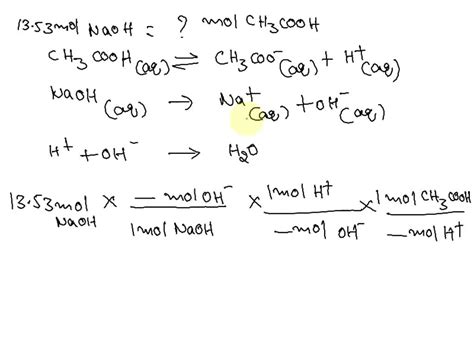 13.53mol NaOH = ? mol CH₃COOH
CH₃COOH(aq) ⇌ CH₃COO⁻(aq) + H⁺(aq)
NaOH(aq) → Na⁺(aq) + OH⁻(aq)
H⁺ + OH⁻ → H₂O
13.53mol NaOH × — mol OH⁻ / 1mol NaOH × 1mol H⁺ / — mol OH⁻ × 1mol CH₃COOH / — mol H⁺